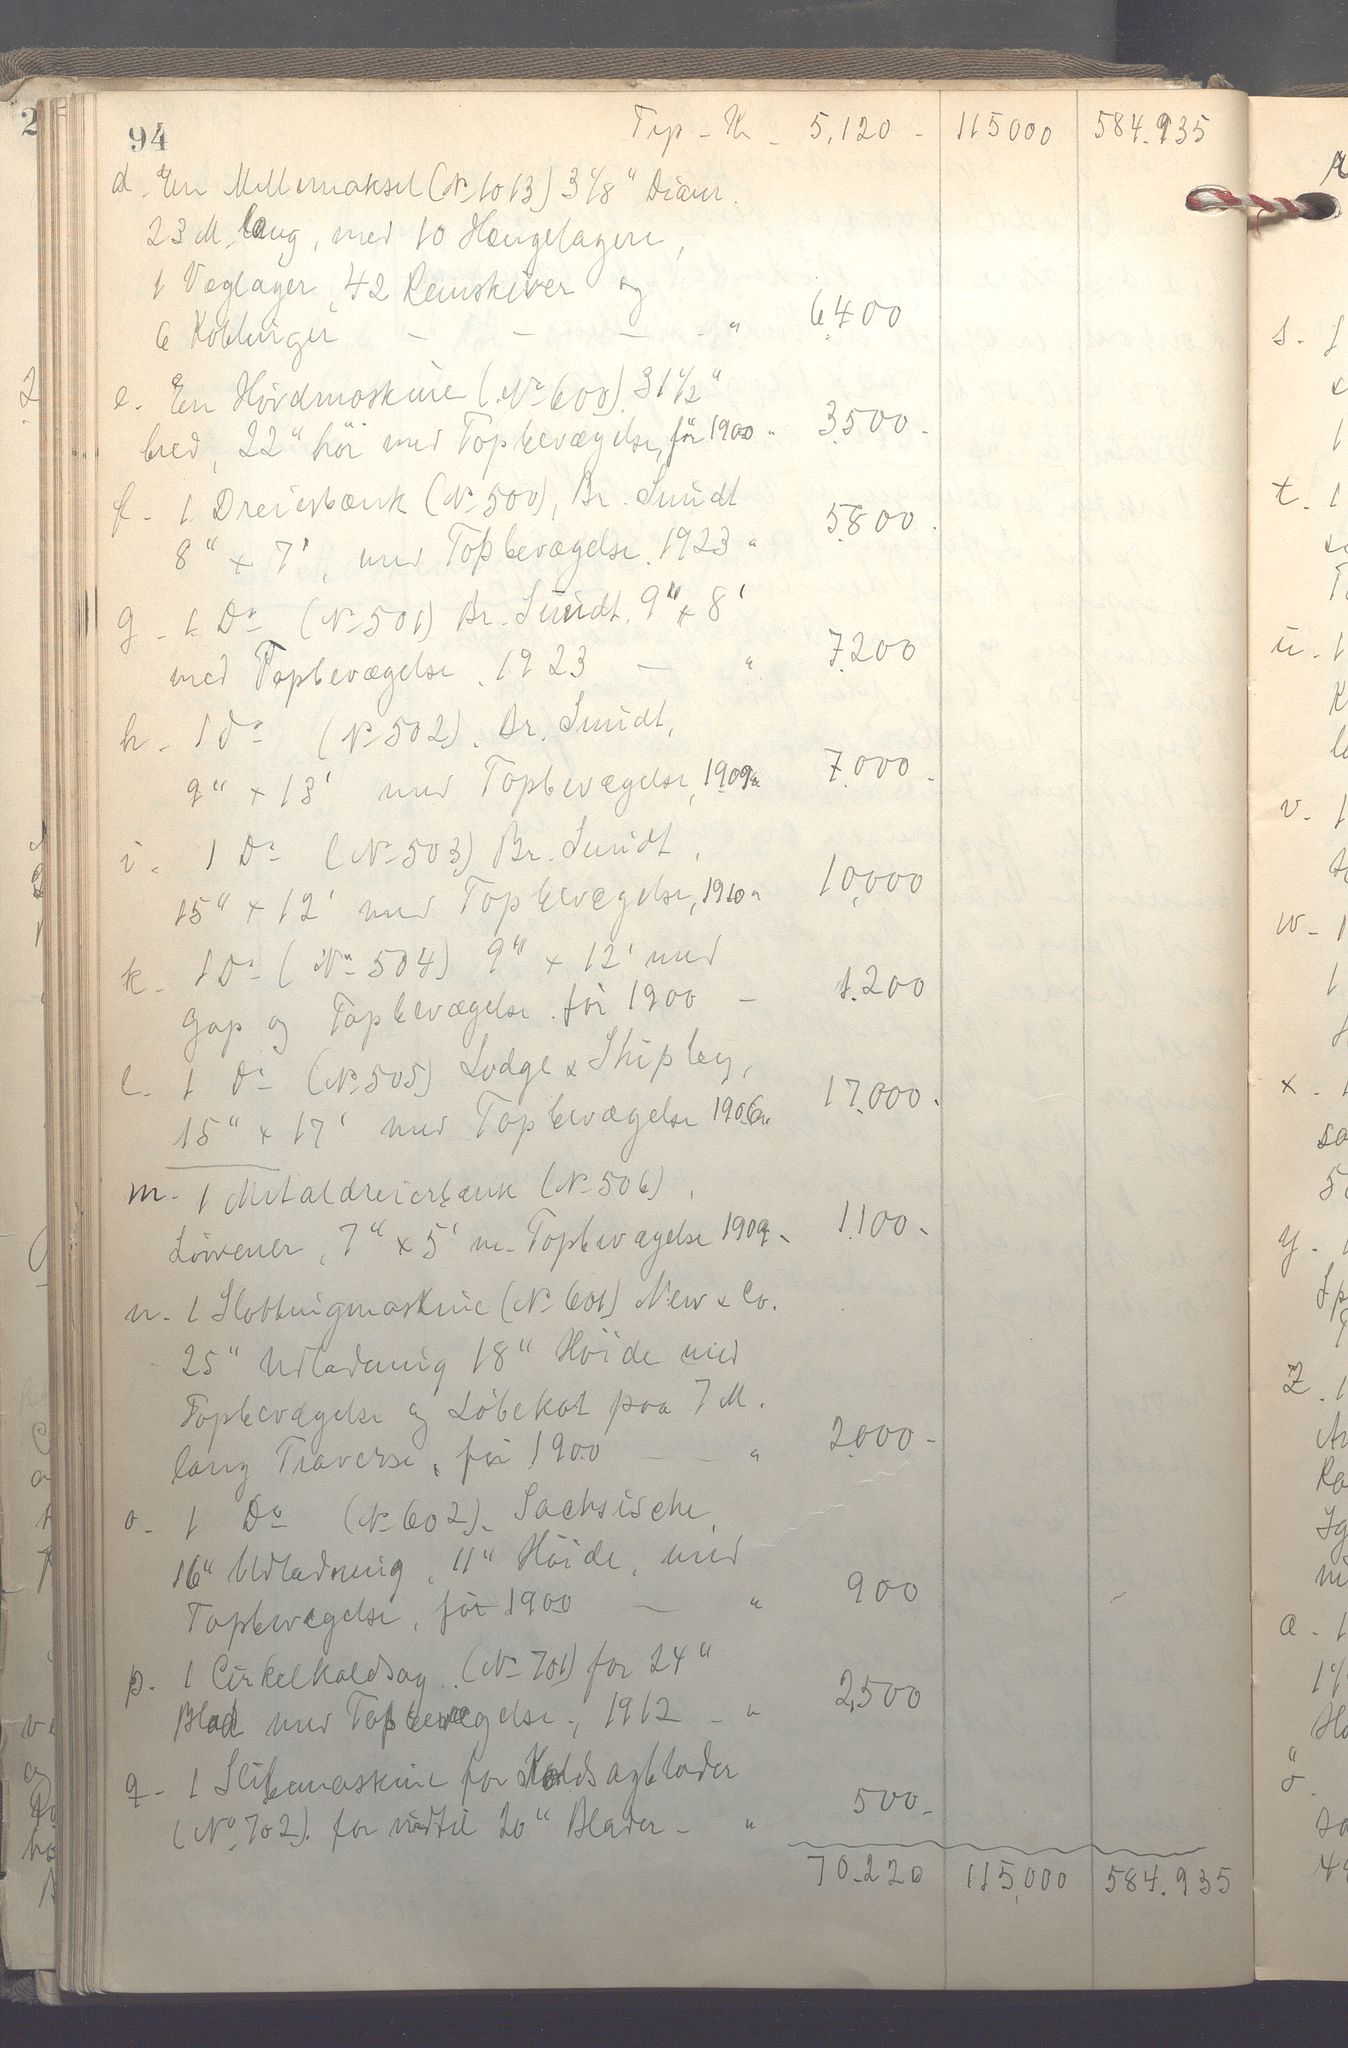 94
Trp - Kr - 5,120 - 115000 584.935
d. En Mellemaksel (No 1013) 3 1/8" Diam.
23 M. lang, med 10 Hængelagere,
1 Væglager, 42 Remskiver og
6 Koblinger - - - - " 6,400
e. En Hövdmaskine (No 600). 31 1/2"
bred, 22" höi med Topbevægelse, för 1900 " 3,500 -
f. 1 Dreierbænk (No 500), Br. Sundt
8" x 7', med Topbevægelse. 1923 " 5.800.
g. 1 Do (No 501) Br. Sundt. 9" x 8'
med Topbevægelse. 1923 - " 7.200
h. 1 Do (No 502). Br. Sundt,
9" x 13' med Topbevægelse, 1909 " 7.000 -
i. 1 Do (No 503) Br. Sundt,
15" x 12' med Topbevægelse, 1910 " 10,000
k. 1 Do (No 504) 9" x 12' med
Gap og Topbevægelse. för 1900 - 1.200
l. 1 Do (No 505) Lodge & Shipley,
15" x 17' med Topbevægelse 1906 " 17,000.
m. 1 Metaldreierbænk (No 506),
Lövener, 7" x 5' m. Topbevægelse 1909 - 1.100 -
n. 1 Slobbingmaskine (No 601) New & Co.
25" Udladning 18" Höide med
Topbevægelse og Löbekat paa 7 M.
lang Traverse, för 1900 - - " 2.000 -
o. 1 Do (No 602). Sachsische,
16" Udladning, 11" Höide, med
Topbevægelse, för 1900 - " 900
p. 1 Cirkelkoldsag (No 701) for 24"
Blad med Topbevægelse, 1912 - " 2,500
q. 1 Slibemaskine for Koldsagblader
(No 702). for indtil 20" Blader - " 500 -
70.220 115,000 584.935